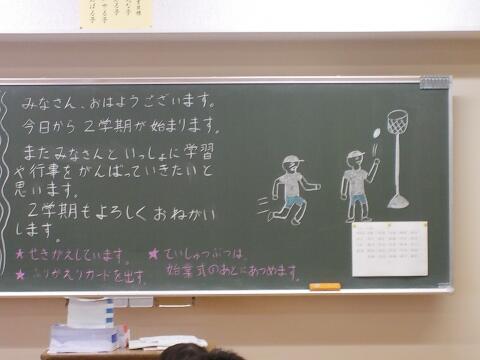 みなさん、おはようございます。
今日から2学期が始まります。
またみなさんといっしょに学習
や行事をがんばっていきたいと
思います。
2学期もよろしくおねがい
します。
★せきかえしています。
★ふりかえりカードを出す。
★ていしゅつぶつは、
始業式のあとにあつめます。